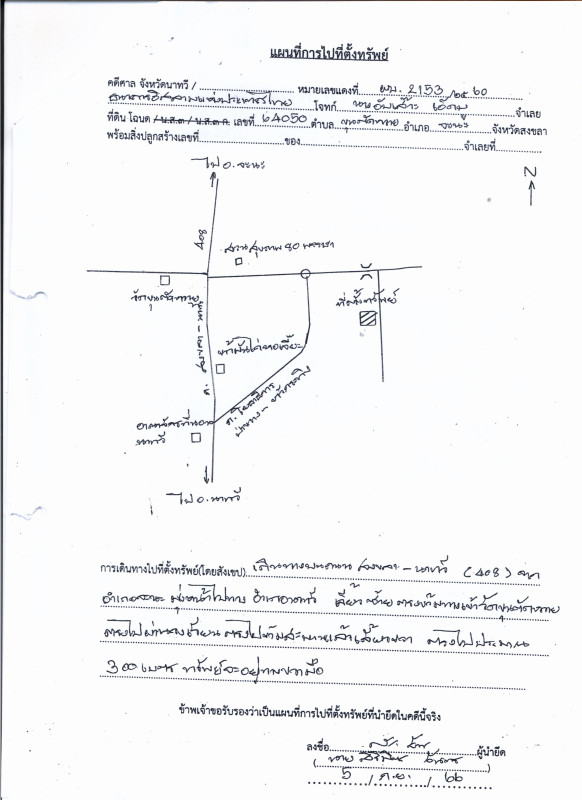 แผนที่การไปที่ตั้งทรัพย์
คดีศาล จังหวัดนาทวี / หมายเลขแดงที่ ผบ. 2153 /๒๕ 60
ธนาคารอิสลามแห่งประเทศไทย โจทก์ จำเลย
ที่ดิน โฉนด / น.ส.๓ / น.ส.๓ ก. เลขที่ 64050 ตำบล ขุนตัดหวาย อำเภอ จะนะ จังหวัดสงขลา
พร้อมสิ่งปลูกสร้างเลขที่ ของ จำเลยที่
ไป อ.จะนะ
N
408
สวนสุขภาพ 80 พรรษา
วัดขุนตัดหวาย
ที่ตั้งทรัพย์
ถ.
สงขลา - นาทวี
นาทวี
ไป อ.นาทวี
การเดินทางไปที่ตั้งทรัพย์(โดยสังเขป) เดินทางบนถนน สงขลา - นาทวี (408) จาก
อำเภอจะนะ มุ่งหน้าไปทาง อำเภอนาทวี เลี้ยวซ้าย ตรงข้ามทางเข้าวัดขุนตัดหวาย
ตรงไปผ่านวงเวียน ตรงไปข้ามสะพานแล้วเลี้ยวขวา ตรงไปประมาณ
300 เมตร ทรัพย์จะอยู่ทางขวามือ
ข้าพเจ้าขอรับรองว่าเป็นแผนที่การไปที่ตั้งทรัพย์ที่นำยึดในคดีนี้จริง
ลงชื่อ ผู้นำยึด
( นาย )
5 / ก.ย. / 66